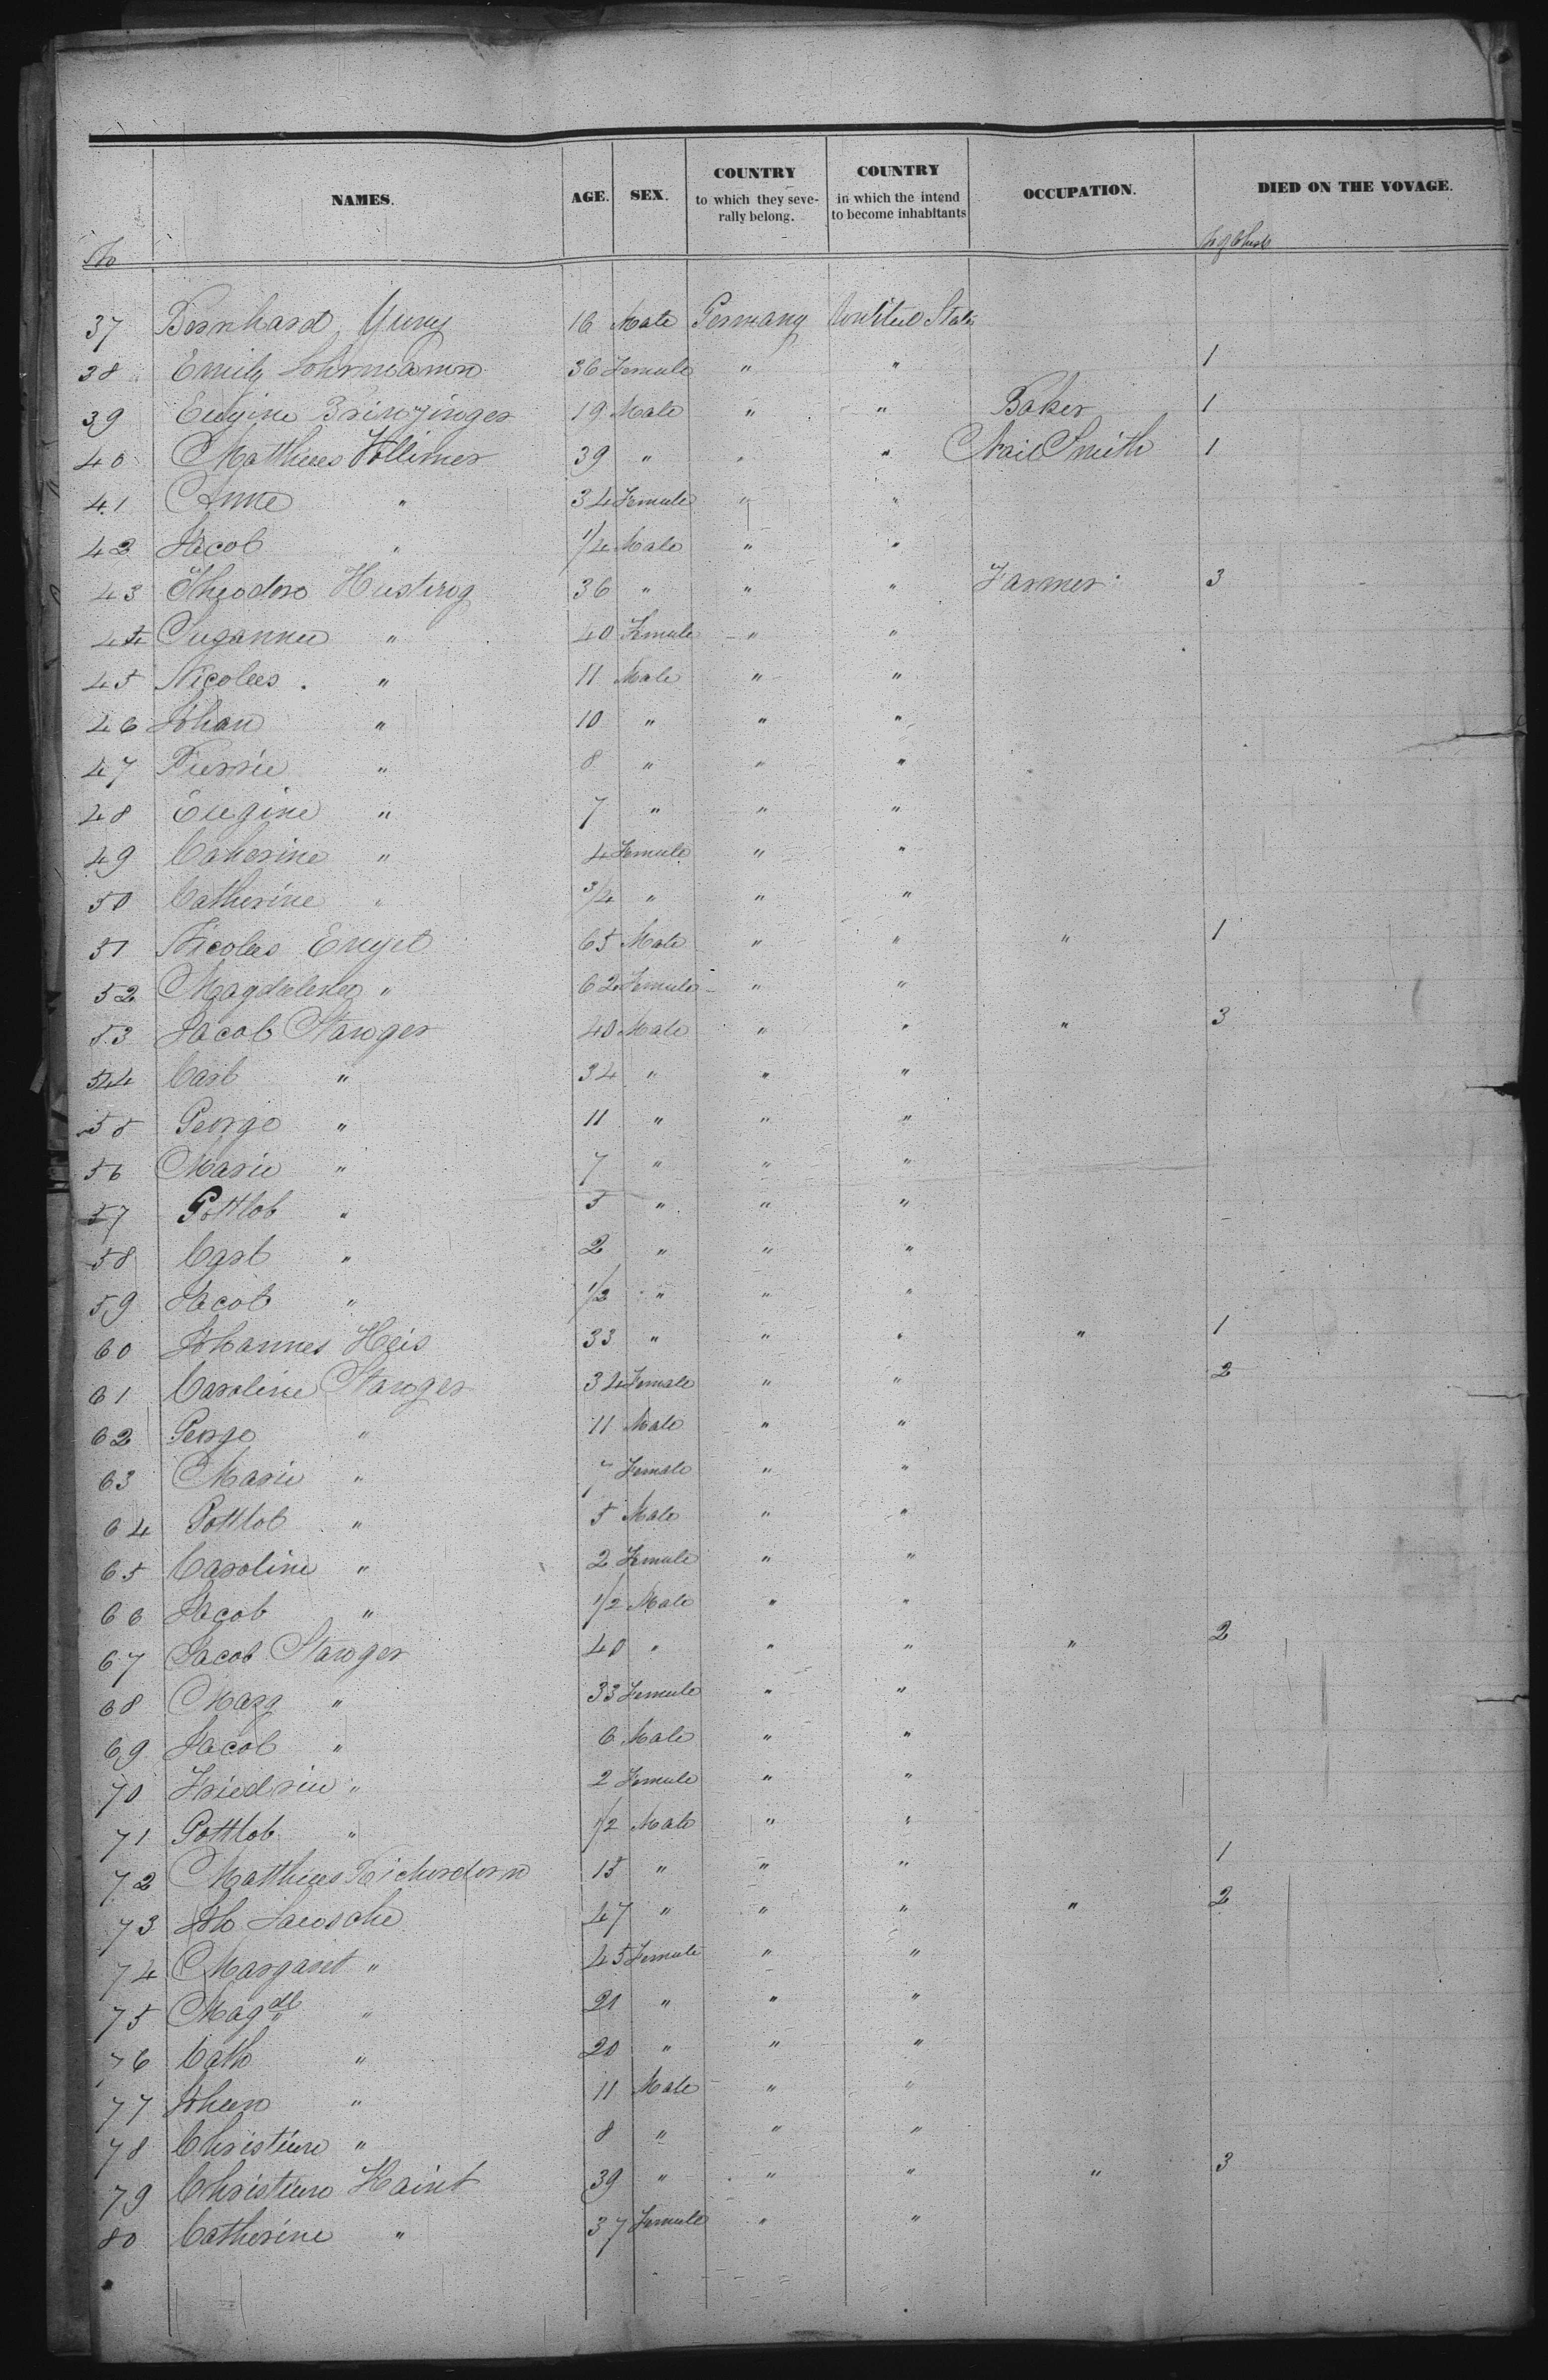 NAMES. AGE. SEX. COUNTRY to which they seve- rally belong. COUNTRY in which the intend to become inhabitants OCCUPATION. DIED ON THE VOYAGE.
No
37 Bernhard Yung 16 Male Germany United States
38 Emily Lohrmann 36 Female " " 1
39 Eugine Brinzinger 19 Male " " Baker 1
40 Matthias Vollimer 39 " " " Nail Smith 1
41 Anna " 34 Female " "
42 Jacob " 1/4 Male " "
43 Theodore Husting 36 " " " Farmer 3
44 Susanna " 40 Female " "
45 Nicolas " 11 Male " "
46 Johan " 10 " " "
47 Pierrie " 8 " " "
48 Eugine " 7 " " "
49 Caherine " 4 Female " "
50 Catherine " 3/4 " " "
51 Nicolas Enget 65 Male " " " 1
52 Magdalena " 62 Female " "
53 Jacob Stanger 40 Male " " " 3
54 Carl " 34 " " "
55 George " 11 " " "
56 Marie " 7 " " "
57 Gottlob " 5 " " "
58 Carl " 2 " " "
59 Jacob " 1/2 " " "
60 Johannes Heis 33 " " " " 1
61 Caroline Stanger 34 Female " " 2
62 George " 11 Male " "
63 Marie " 7 Female " "
64 Gottlob " 5 Male " "
65 Caroline " 2 Female " "
66 Jacob " 1/2 Male " "
67 Jacob Stanger 40 " " " " 2
68 Marg " 33 Female " "
69 Jacob " 6 Male " "
70 Friedrin " 2 Female " "
71 Gottlob " 1/2 Male " "
72 Matthias 15 " " " 1
73 Joh 47 " " " " 2
74 Margaret " 45 Female " "
75 Magdl " 21 " " "
76 Cath " 20 " " "
77 Johan " 11 Male " "
78 Christian " 8 " " "
79 Christian Haint 39 " " " " 3
80 Catherine " 37 Female " "